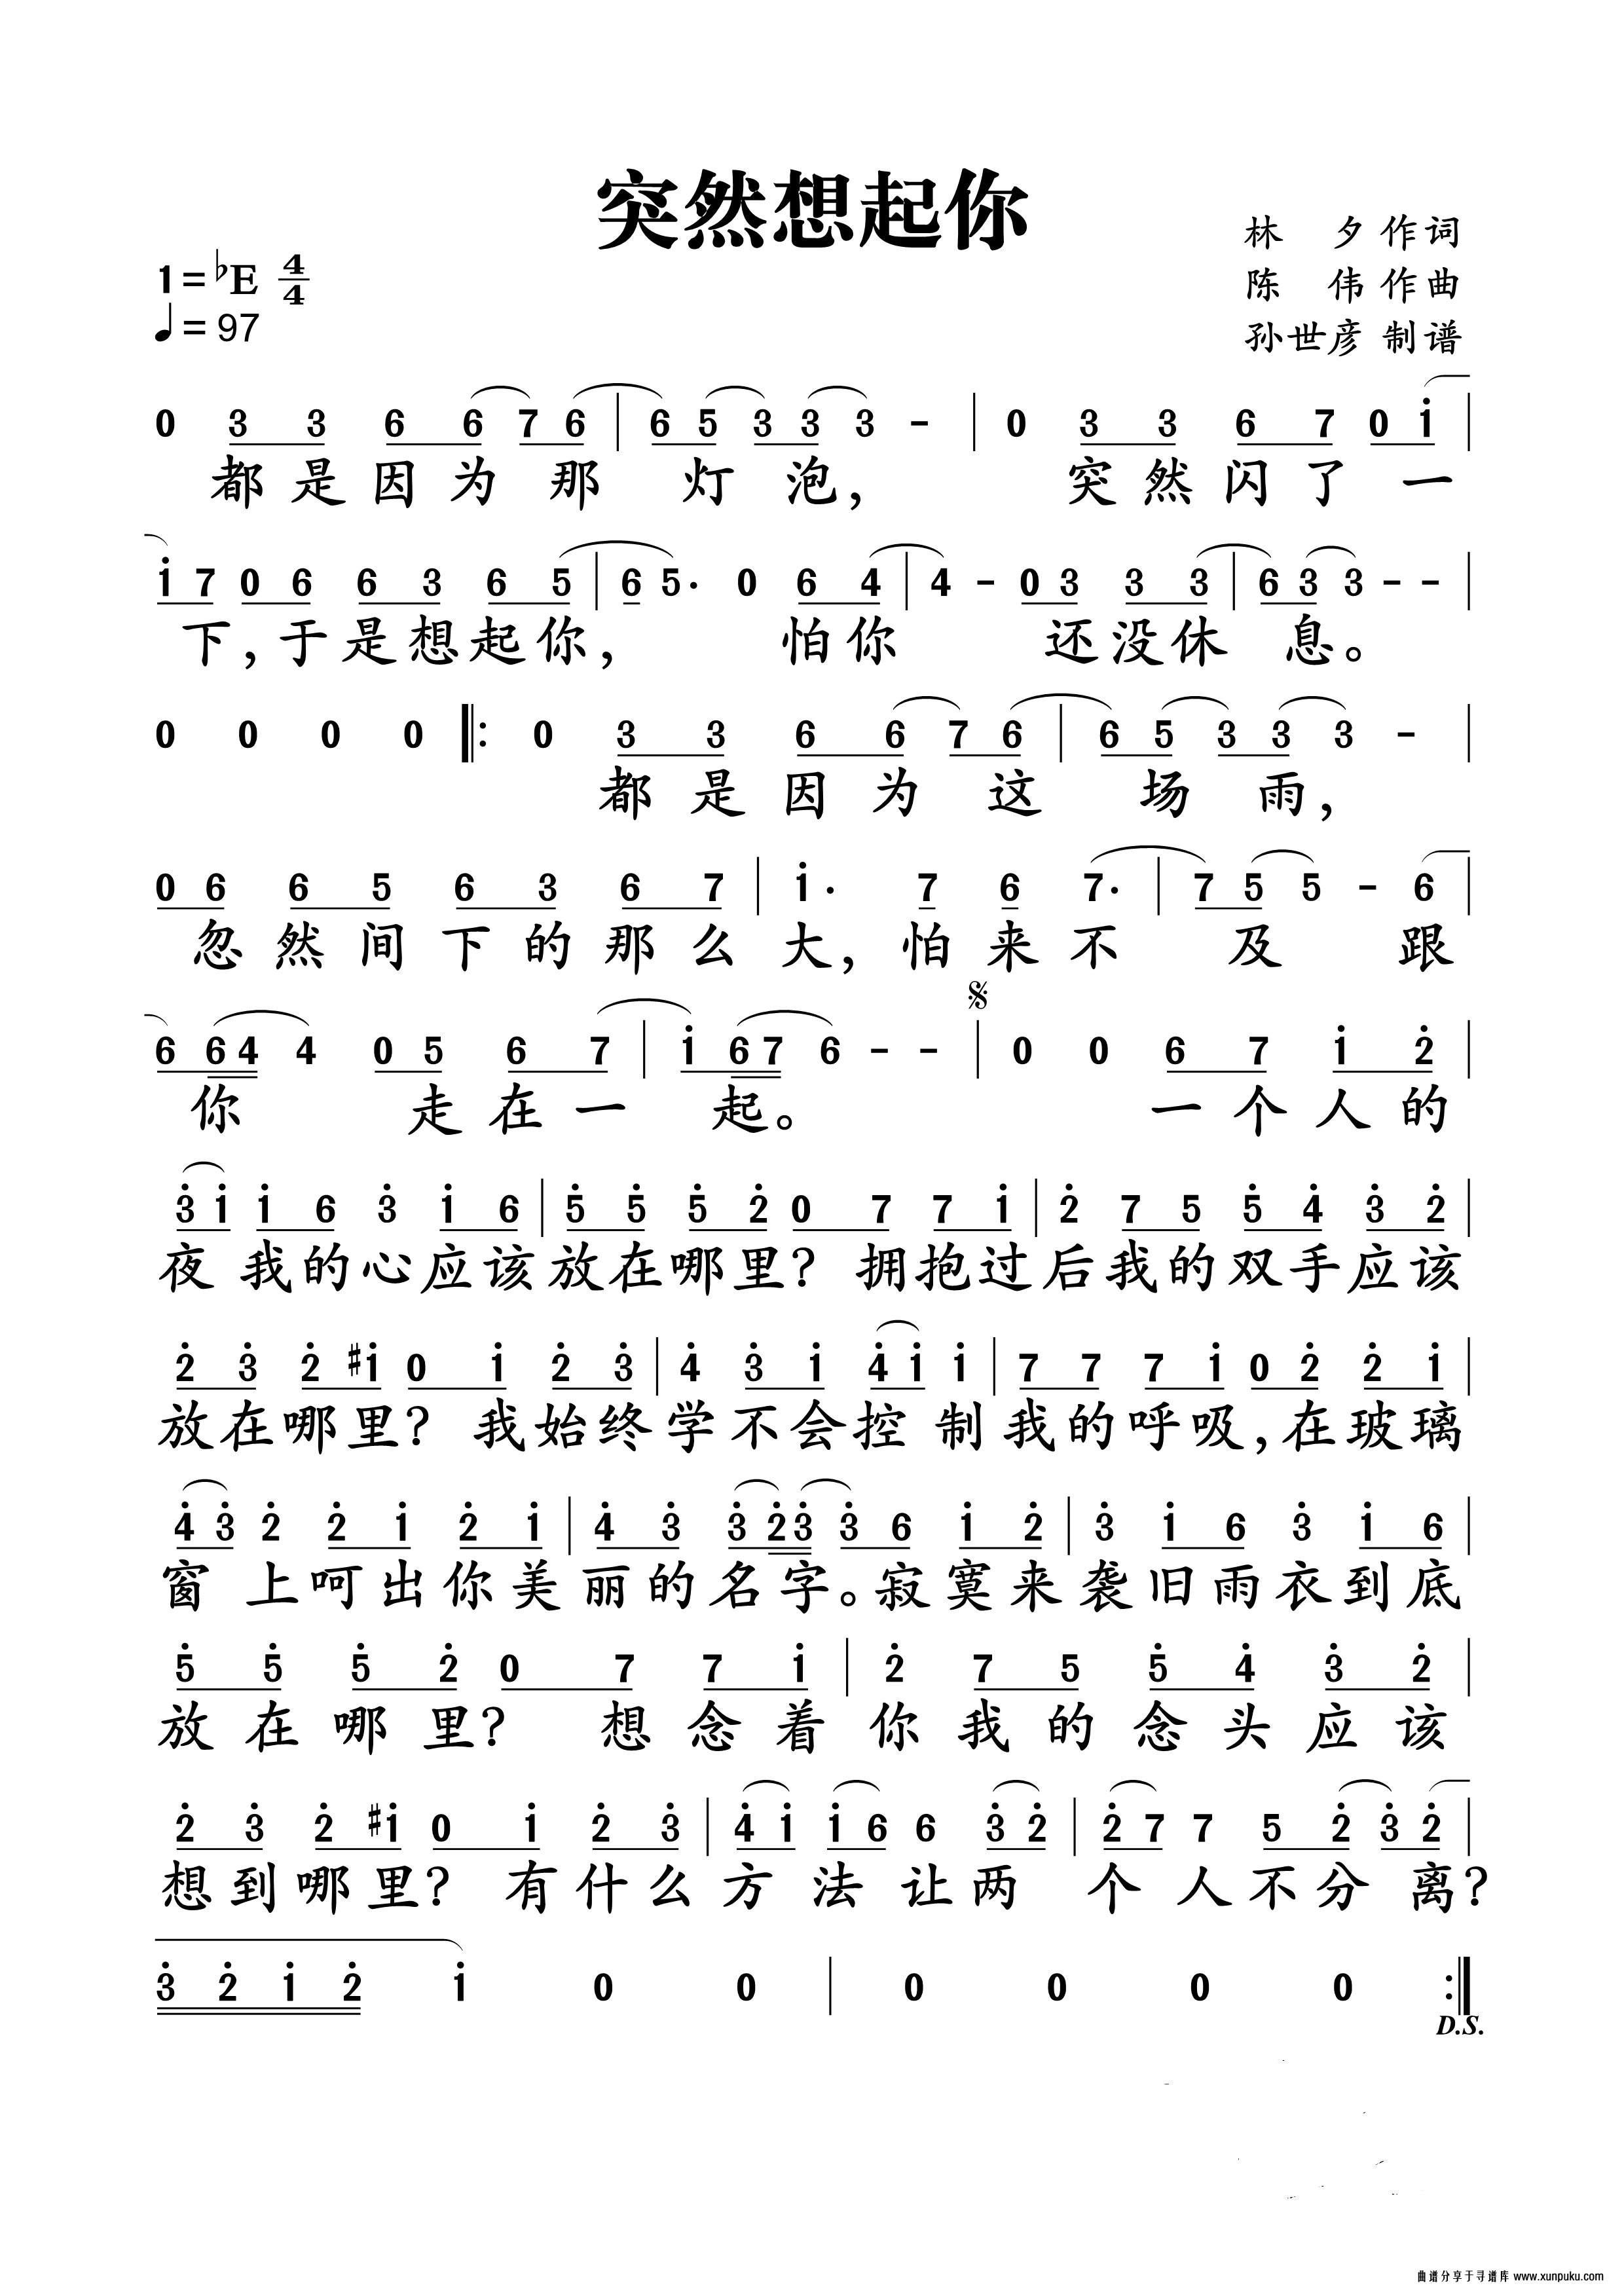 突然想起你
林 夕 作词
1=♭E 4/4
陈 伟 作曲
♩=97
孙世彦 制谱
0 3 3 6 6 7 6 | 6 5 3 3 3 - | 0 3 3 6 7 0 i |
都是因为那 灯 泡， 突然闪了一
i 7 0 6 6 3 6 5 | 6 5· 0 6 4 | 4 - 0 3 3 3 | 6 3 3 - - |
下，于是想起你， 怕你 还没休 息。
0 0 0 0 ‖: 0 3 3 6 6 7 6 | 6 5 3 3 3 - |
都是因为这 场 雨，
0 6 6 5 6 3 6 7 | i· 7 6 7· | 7 5 5 - 6 |
忽然间下的那么大，怕来不 及 跟
𝄋
6 6 4 4 0 5 6 7 | i 6 7 6 - - | 0 0 6 7 i 2̇ |
你 走在一 起。 一个人的
3̇ i i 6 3̇ i 6 | 5̇ 5̇ 5̇ 2̇ 0 7 7 i | 2̇ 7 5 5̇ 4̇ 3̇ 2̇ |
夜 我的心应该放在哪里？拥抱过后我的双手应该
2̇ 3̇ 2̇ #i 0 i 2̇ 3̇ | 4̇ 3̇ i 4̇ i i | 7 7 7 i 0 2̇ 2̇ i |
放在哪里？我始终学不会控 制我的呼吸，在玻璃
4̇ 3̇ 2̇ 2̇ i 2̇ i | 4̇ 3̇ 3̇ 2̇ 3̇ 3̇ 6 i 2̇ | 3̇ i 6 3̇ i 6 |
窗 上呵出你美丽的名字。寂寞来袭旧雨衣到底
5̇ 5̇ 5̇ 2̇ 0 7 7 i | 2̇ 7 5 5̇ 4̇ 3̇ 2̇ |
放在哪里？ 想念着你我的念头应该
2̇ 3̇ 2̇ #i 0 i 2̇ 3̇ | 4̇ i i 6 6 3̇ 2̇ | 2̇ 7 7 5 2̇ 3̇ 2̇ |
想到哪里？有什么方 法让两 个 人不分 离？
3̇ 2̇ i 2̇ i 0 0 | 0 0 0 0 :‖
D.S.
曲谱分享于寻谱库 www.xunpuku.com